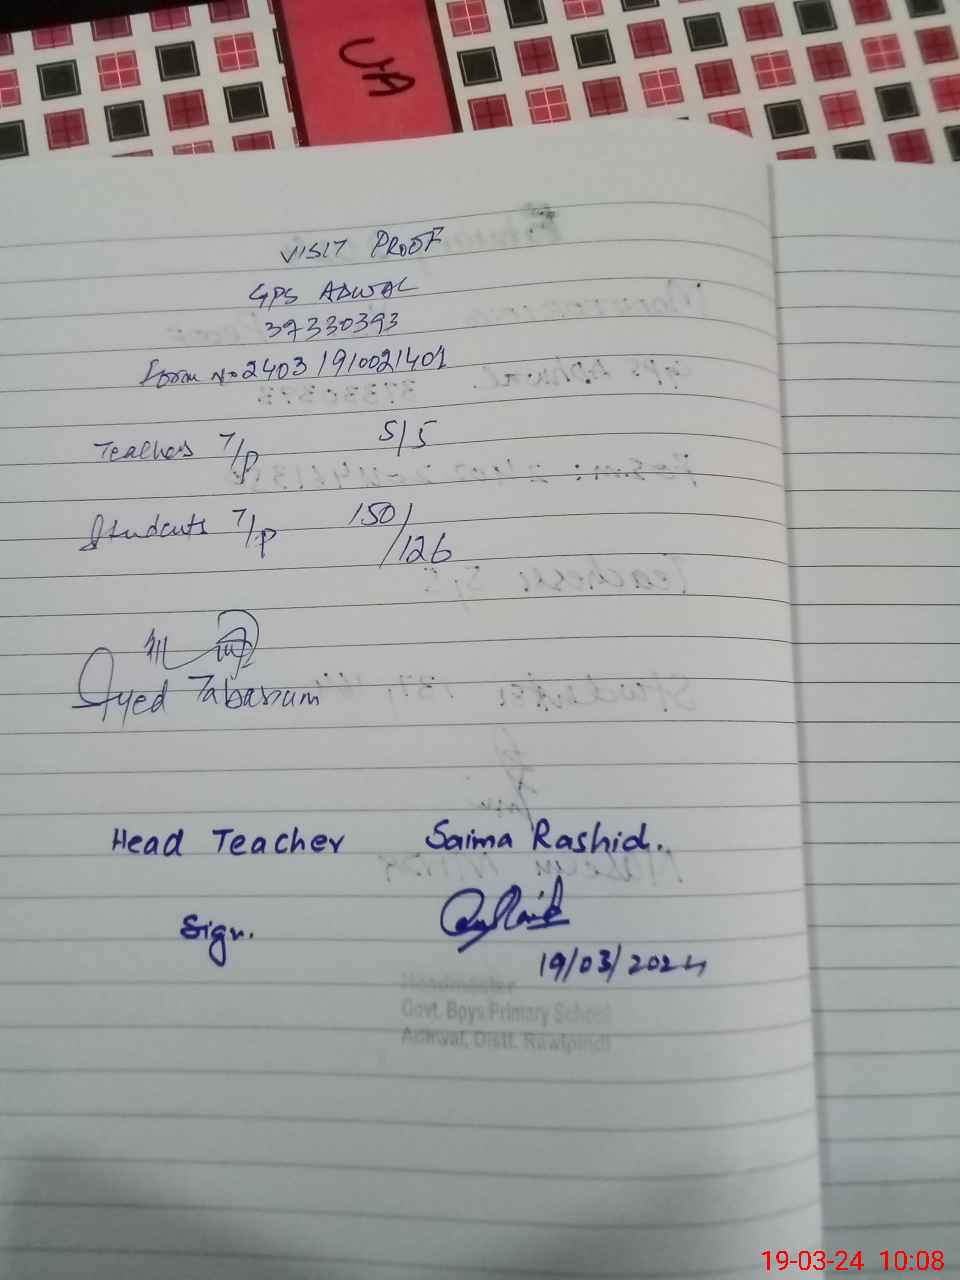 UA
VISIT PROOF
GPS ADWAL
37330393
Form No 24031910021401
Teachers T/P 5/5
Students T/P 150/126
Syed Tabassum
Head Teacher Saima Rashid.
Sign.
19/03/2024
Headmaster
Govt. Boys Primary School
Adhwal, Distt. Rawlpindi
19-03-24 10:08